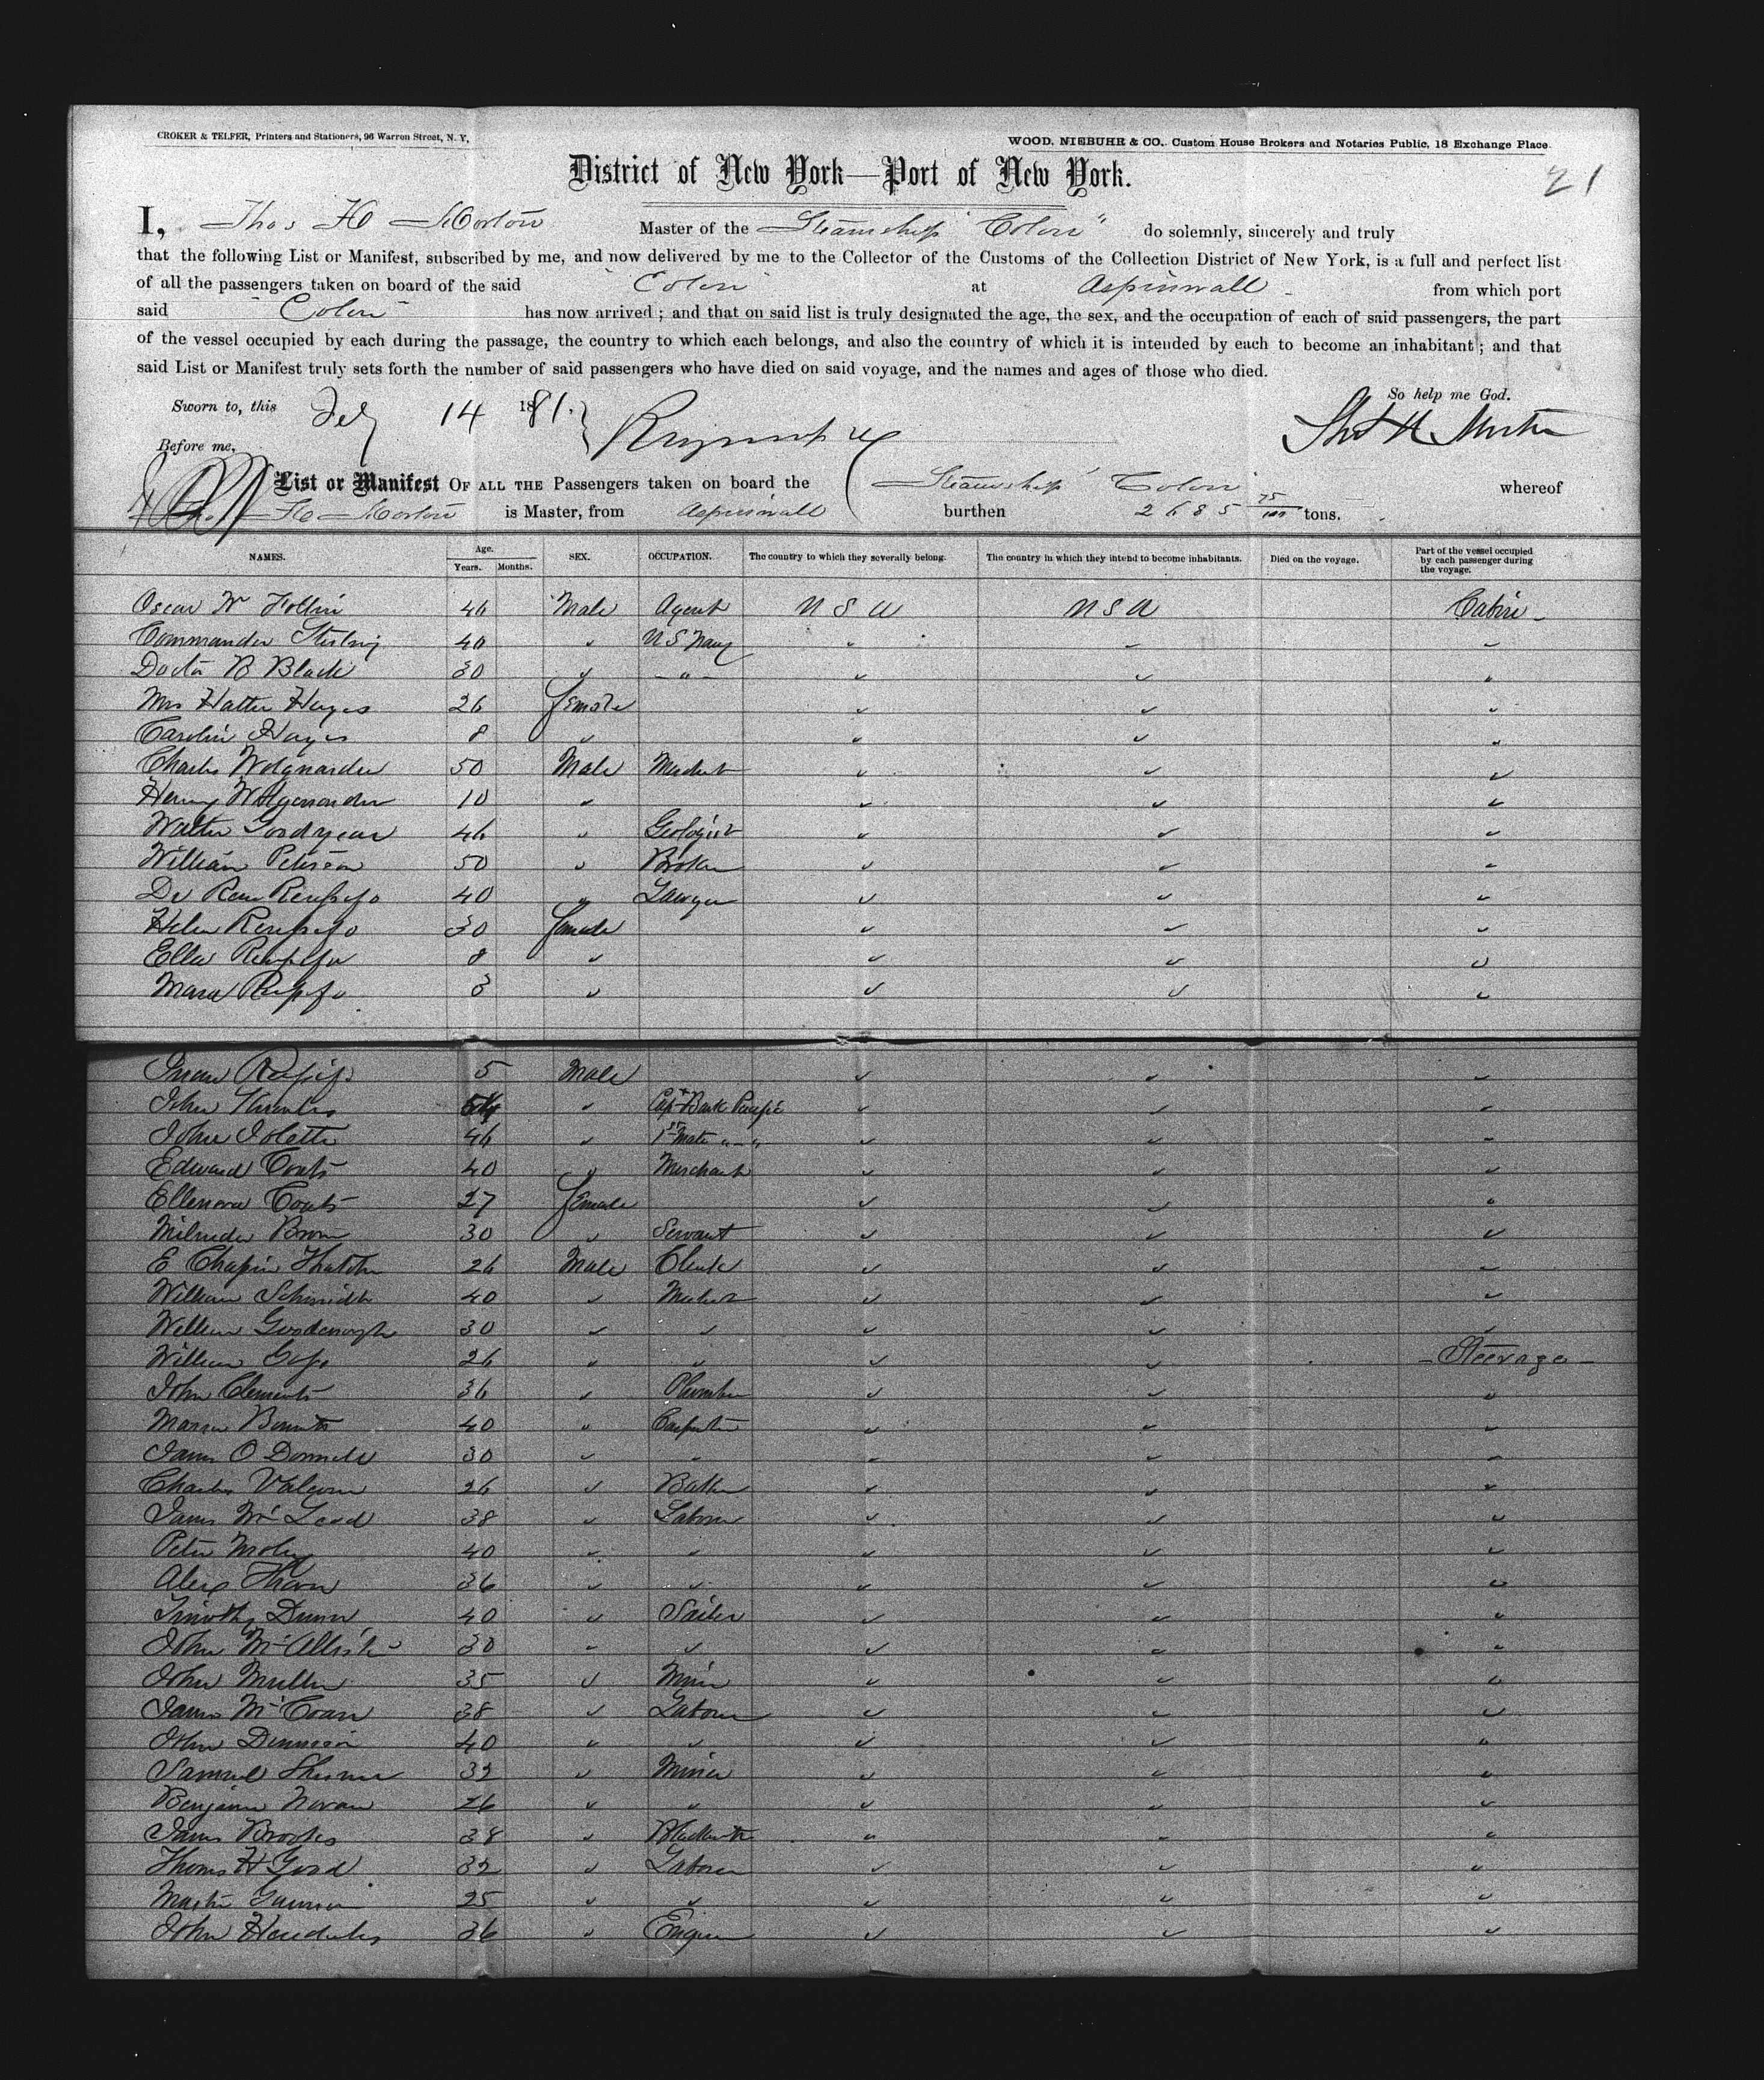 CROKER & TELFER, Printers and Stationers, 96 Warren Street, N. Y.
WOOD, NIEBUHR & CO., Custom House Brokers and Notaries Public, 18 Exchange Place.
District of New York—Port of New York.
21
I, Thos H Morton Master of the Steamship "Colon" do solemnly, sincerely and truly
that the following List or Manifest, subscribed by me, and now delivered by me to the Collector of the Customs of the Collection District of New York, is a full and perfect list
of all the passengers taken on board of the said "Colon" at Aspinwall from which port
said "Colon" has now arrived; and that on said list is truly designated the age, the sex, and the occupation of each of said passengers, the part
of the vessel occupied by each during the passage, the country to which each belongs, and also the country of which it is intended by each to become an inhabitant; and that
said List or Manifest truly sets forth the number of said passengers who have died on said voyage, and the names and ages of those who died.
So help me God.
Sworn to, this Feby 14 1881.
Thos H Morton
Before me,
List or Manifest OF ALL THE Passengers taken on board the Steamship Colon whereof
Thos H Morton is Master, from Aspinwall burthen 2685 75/100 tons.
NAMES. Age. Years. Months. SEX. OCCUPATION. The country to which they severally belong. The country in which they intend to become inhabitants. Died on the voyage. Part of the vessel occupied by each passenger during the voyage.
Oscar W 46 Male Agent U S A U S A Cabin
Commander Sterling 40 " U S Navy " " "
Doctor B Black 30 " " " " "
Mrs Hatter Hayes 26 female " " "
Carolin Hayes 8 " " " "
Charles 50 Male Merchant " " "
Henry 10 " " " "
Walter Goodyear 46 " Geologist " " "
William Peterson 50 " Broker " " "
40 " Lawyer " " "
Helen 30 female " " "
Ella 8 " " " "
3 " " " "
5 Male " " "
John " Capt Bark " " "
John 46 " 1st Mate " " " " "
Edward Coats 40 " Merchant " " "
Ellenora Coats 27 female " " "
30 " Servant " " "
E Chapin Thatcher 26 Male Clerk " " "
William Schmidt 40 " " " "
William Goodenough 30 " " " " "
William 26 " " " " Steerage
John Clements 36 " Plumber " " "
40 " Carpenter " " "
James O Donnell 30 " " " " "
Charles 26 " " " "
James McLeod 38 " Laborer " " "
Peter 40 " " " " "
Alex 36 " " " " "
Timothy Dunn 40 " Sailor " " "
John McAllister 30 " " " " "
John Muller 35 " Miner " " "
James 38 " Laborer " " "
John Dennison 40 " " " " "
Samuel 32 " Miner " " "
Benjamin 26 " " " " "
James Brooks 38 " Blacksmith " " "
Thomas H Good 32 " Laborer " " "
Martin 25 " " " " "
John Hendricks 36 " Engineer " " "